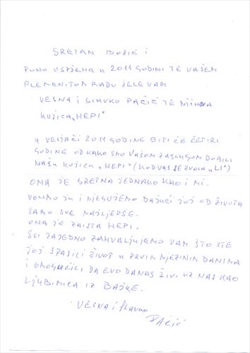 SRETAN BOŽIĆ I
PUNO USPJEHA U 2011 GODINI TE VAŠEM
PLEMENITOM RADU ŽELE VAM
VESNA I SLAVKO PAČIĆ TE NJIHOVA
KUJICA „HEPI"
U VELJAČI 2011 GODINE BITI ĆE ČETIRI
GODINE OD KAKO SMO VAŠOM ZASLUGOM DOBILI
NAŠU KUJICU „HEPI" (KOD VAS JE ZVALA „LI")
ONA JE SRETNA JEDNAKO KAO I MI.
VOLIMO JU I NJEGUJEMO DAJUĆI JOJ OD ŽIVOTA
SAMO SVE NAJLJEPŠE.
ONA JE ZAISTA HEPI.
SVI ZAJEDNO ZAHVALJUJEMO VAM ŠTO STE
JOJ SPASILI ŽIVOT U PRVIM NJEZINIM DANIMA
I OMOGUĆILI DA EVO DANAS ŽIVI UZ NAS KAO
LJUBIMICA IZ BAJKE.
VESNA I SLAVKO
PAČIĆ